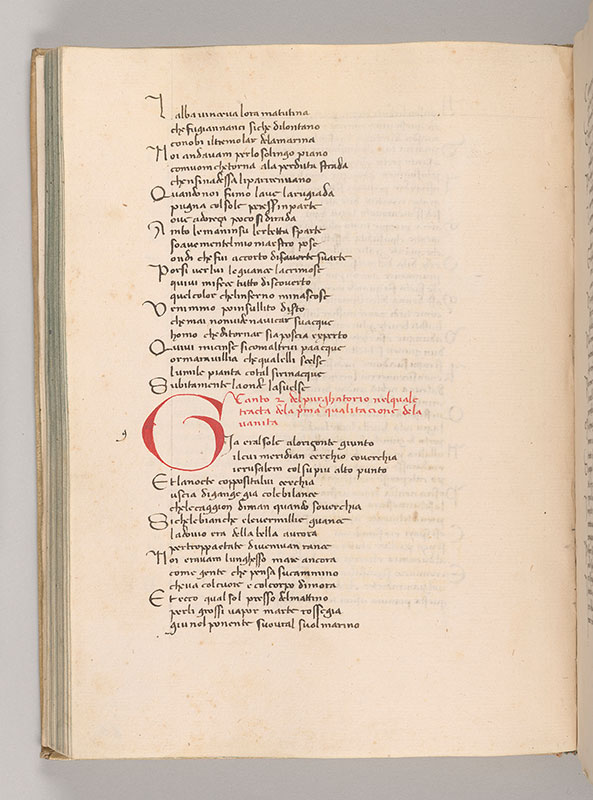 L alba vinceva lora matutina
che fugia nnanci si che di lontano
conobi il tremolar dela marina
Noi andavam per lo solingo piano
com uom che torna ala perduta strada
che nsina dessa li par ire nvano
Quando noi fumo la ve la rugiada
pugna col sole
ove adoreça poco si dirada
Ambo le mani in su lerbetta sparte
soavemente l mio maestro pose
ondi che fui accorto di
Porsi ver lui le guance lacrimose
quivi mi fece tutto discoverto
quel color che linferno mi nascose
Venimmo poi n sul lito
che mai non vide navicar su acque
homo che di tornar sia poscia experto
Quivi mi cinse si com altrui piacque
o maravillia che qual elli scelse
lumile pianta cotal si rinacque
Subitamente la onde la svelse
Canto 2 del purghatorio nel quale
tracta dela pma qualitacione dela
vanita
Gia era l sole a loriçonte giunto
il cui meridian cerchio coverchia
ierusalem col su piu alto punto
Et la nocte copposita lui cerchia
uscia di gange gia cole bilance
che le caggion di man quando soverchia
Si che le bianche e le vermillie guance
la dov io era della bella aurora
per troppa etate divenivan rance
Noi eravam lunghesso mare ancora
come gente che pensa su cammino
che va col cuore e col corpo dimora
Et ecco qual sol presso del mattino
per li grossi vapor marte rosseggia
giu nel ponente sovra l suol marino